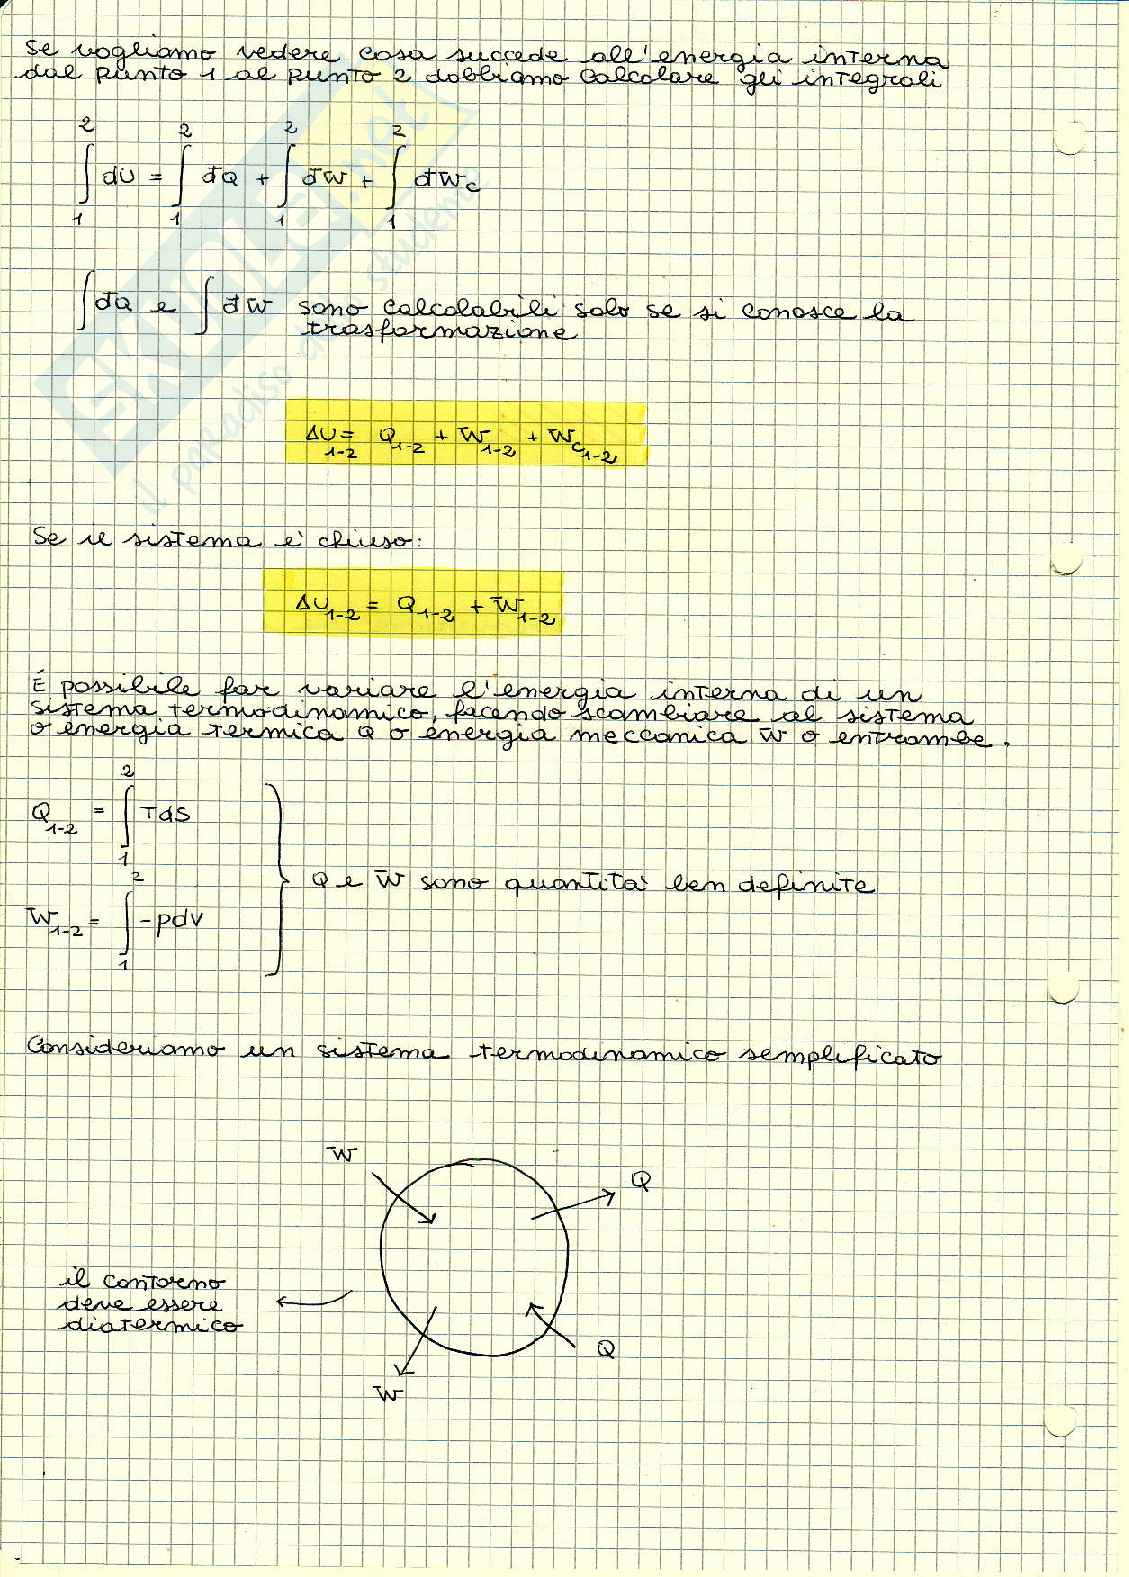 se vogliamo vedere cosa succede all'energia interna
dal punto 1 al punto 2 dobbiamo calcolare gli integrali
∫₁² dU = ∫₁² đQ + ∫₁² đW + ∫₁² đWc
∫đQ e ∫đW sono calcolabili solo se si conosce la
trasformazione
ΔU₁₋₂ = Q₁₋₂ + W₁₋₂ + Wc₁₋₂
Se il sistema e' chiuso:
ΔU₁₋₂ = Q₁₋₂ + W₁₋₂
È possibile far variare l'energia interna di un
sistema termodinamico, facendo scambiare al sistema
o energia termica Q o energia meccanica W o entrambe.
Q₁₋₂ = ∫₁² TdS
Q e W sono quantita' ben definite
W₁₋₂ = ∫₁² -pdv
Consideriamo un sistema termodinamico semplificato
W
Q
il contorno
deve essere
diatermico
Q
W
SKUOLA.net
il paradiso dello studente